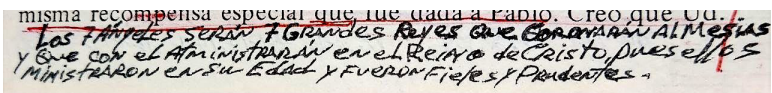 misma recompensa especial que fue dada a Pablo. Creo que Ud.
Los 7 Ángeles serán 7 Grandes Reyes que coronarán al Mesías
y que con el administrarán en el Reino de Cristo, pues ellos
ministraron en su Edad y fueron Fieles y Prudentes.